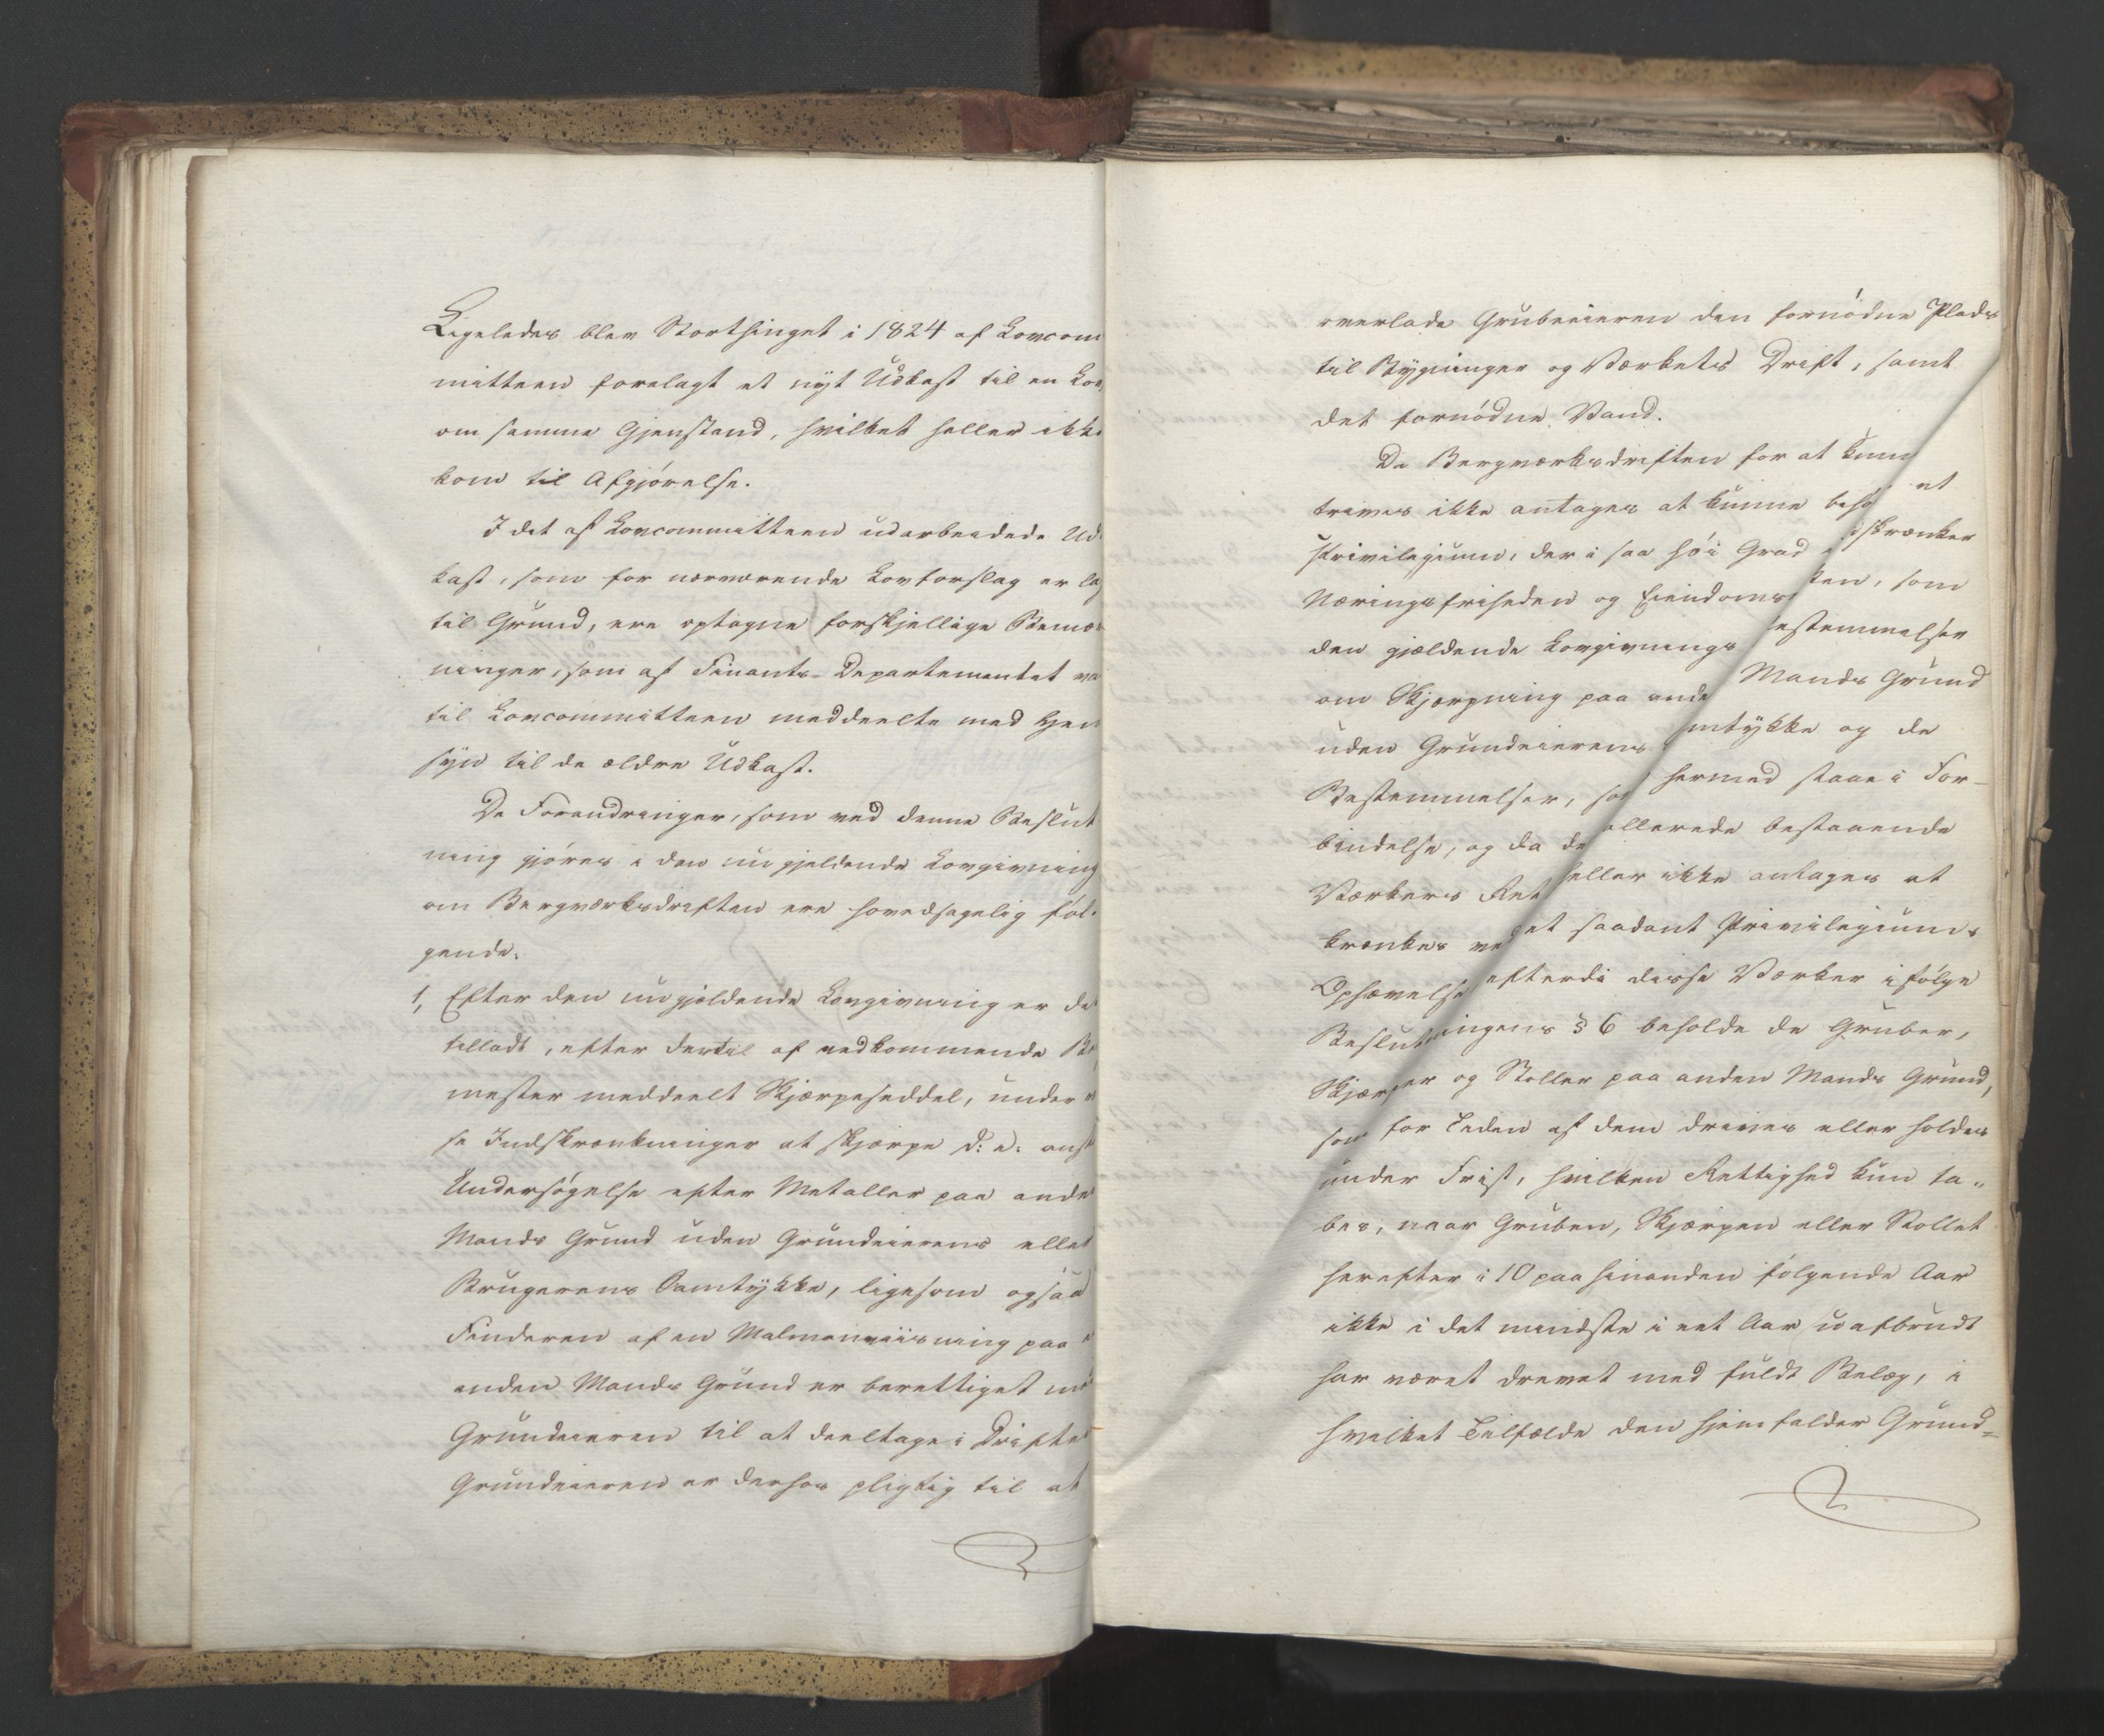 Ligeledes blev Storthinget i 1824 af Lovcom
mitteen forelagt et nyt Udkast til en Lov
om samme Gjenstand, hvilket heller ikke
kom til Afgjørelse.
I det af Lovcommitteen udarbeidede Ud
kast, som for nærværende Lovforslag er lag
til Grund, ere optagne forskjellige Bemær
ninger, som af Finants-Departementet va
til Lovcommitteen meddeelte med Hen
syn til de ældre Udkast.
De Forandringer, som ved denne Beslut
ning gjøres i den nu gjeldende Lovgivning
om Bergværksdriften ere hovedsagelig føl-
gende.
1, Efter den nu gjældende Lovgivning er det
tilladt, efter dertil af vedkommende Be
mester meddeelt Skjærpeseddel, under
se Indskrænkninger at skjærpe d: e: anst
Undersøgelse efter Metaller paa anden
Mands Grund uden Grundeierens eller
Brugerens Samtykke, ligesom ogsaa
Finderen af en Malmanviisning paa
anden Mands Grund er berettiget med
Grundeieren til at deeltage i Driften
Grundeieren er derhos pligtig til at
overlade Grubeeieren den fornødne Plads
til Bygninger og Værkets Drift, samt
det fornødne Vand.
Da Bergværksdriften for at kunn
trives ikke antages at kunne behø et
Privilegium, der i saa høi Grad indskrænker
Næringsfriheden og Eiendoms ten, som
den gjældende Lovgivnings estemmelser
om Skjærpning paa ande Mands Grund
uden Grundeierens mtykke og de
Bestemmelser, so hermed staae i For-
bindelse, og da de allerede bestaaende
Værkers Ret heller ikke antages at
krænkes ved et saadant Privilegiums
Ophævelse efterdi disse Værker ifølge
Beslutningens § 6 beholde de Gruber,
Skjærper og Stoller paa anden Mands Grund,
som for Tiden af dem drives eller holdes
under Frist, hvilken Rettighed kun ta-
bes, naar Gruben, Skjærpen eller Stollet
herefter i 10 paa hinanden følgende Aar
ikke i det mindste i eet Aar uafbrudt
har været drevet med fuldt Belæg, i
hvilket Tilfælde den hjemfalder Grund-